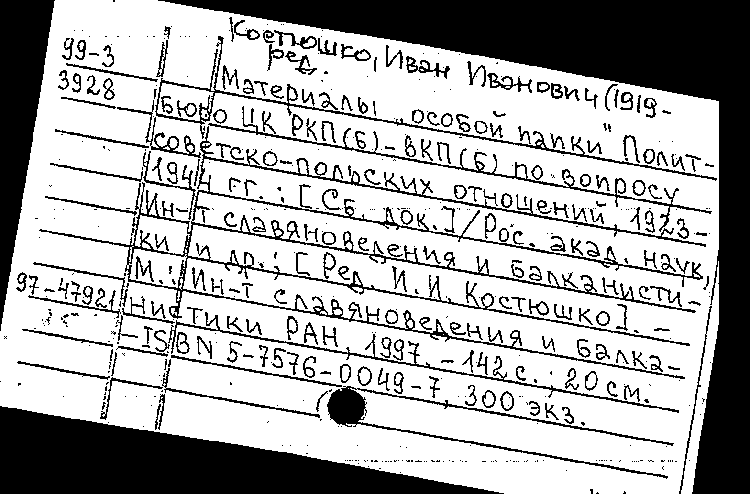 Костюшко, Иван Иванович (1919-
ред.
99-3
3928
Материалы „особой папки" Полит-
бюро ЦК РКП(б)-ВКП(б) по вопросу
советско-польских отношений, 1923-
1944 гг. : [Сб. док.]/Рос. акад. наук,
Ин-т славяноведения и балканисти-
ки и др.; [Ред. И.И. Костюшко]. -
М.: Ин-т славяноведения и балка-
97-47921
нистики РАН, 1997. - 142 с. ; 20 см.
-ISBN 5-7576-0049-7, 300 экз.